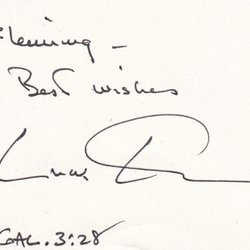 Fleming –
Best wishes
GAL. 3:28